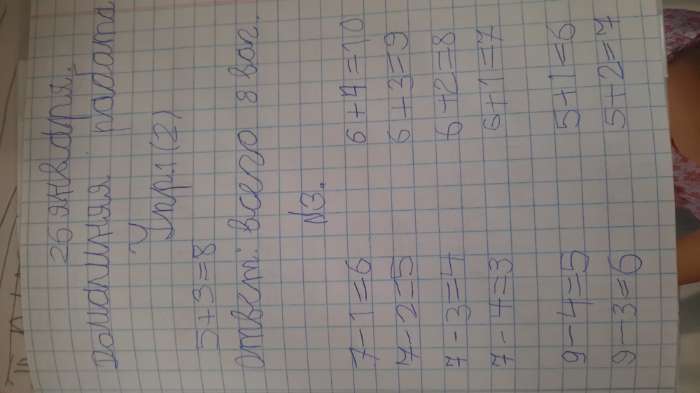 26 января.
Домашняя работа
Упр1(2)
5+3=8
ответ: всего 8 ваг.
№3.
7-1=6 6+4=10
7-2=5 6+3=9
7-3=4 6+2=8
7-4=3 6+1=7
9-4=5 5+1=6
9-3=6 5+2=7